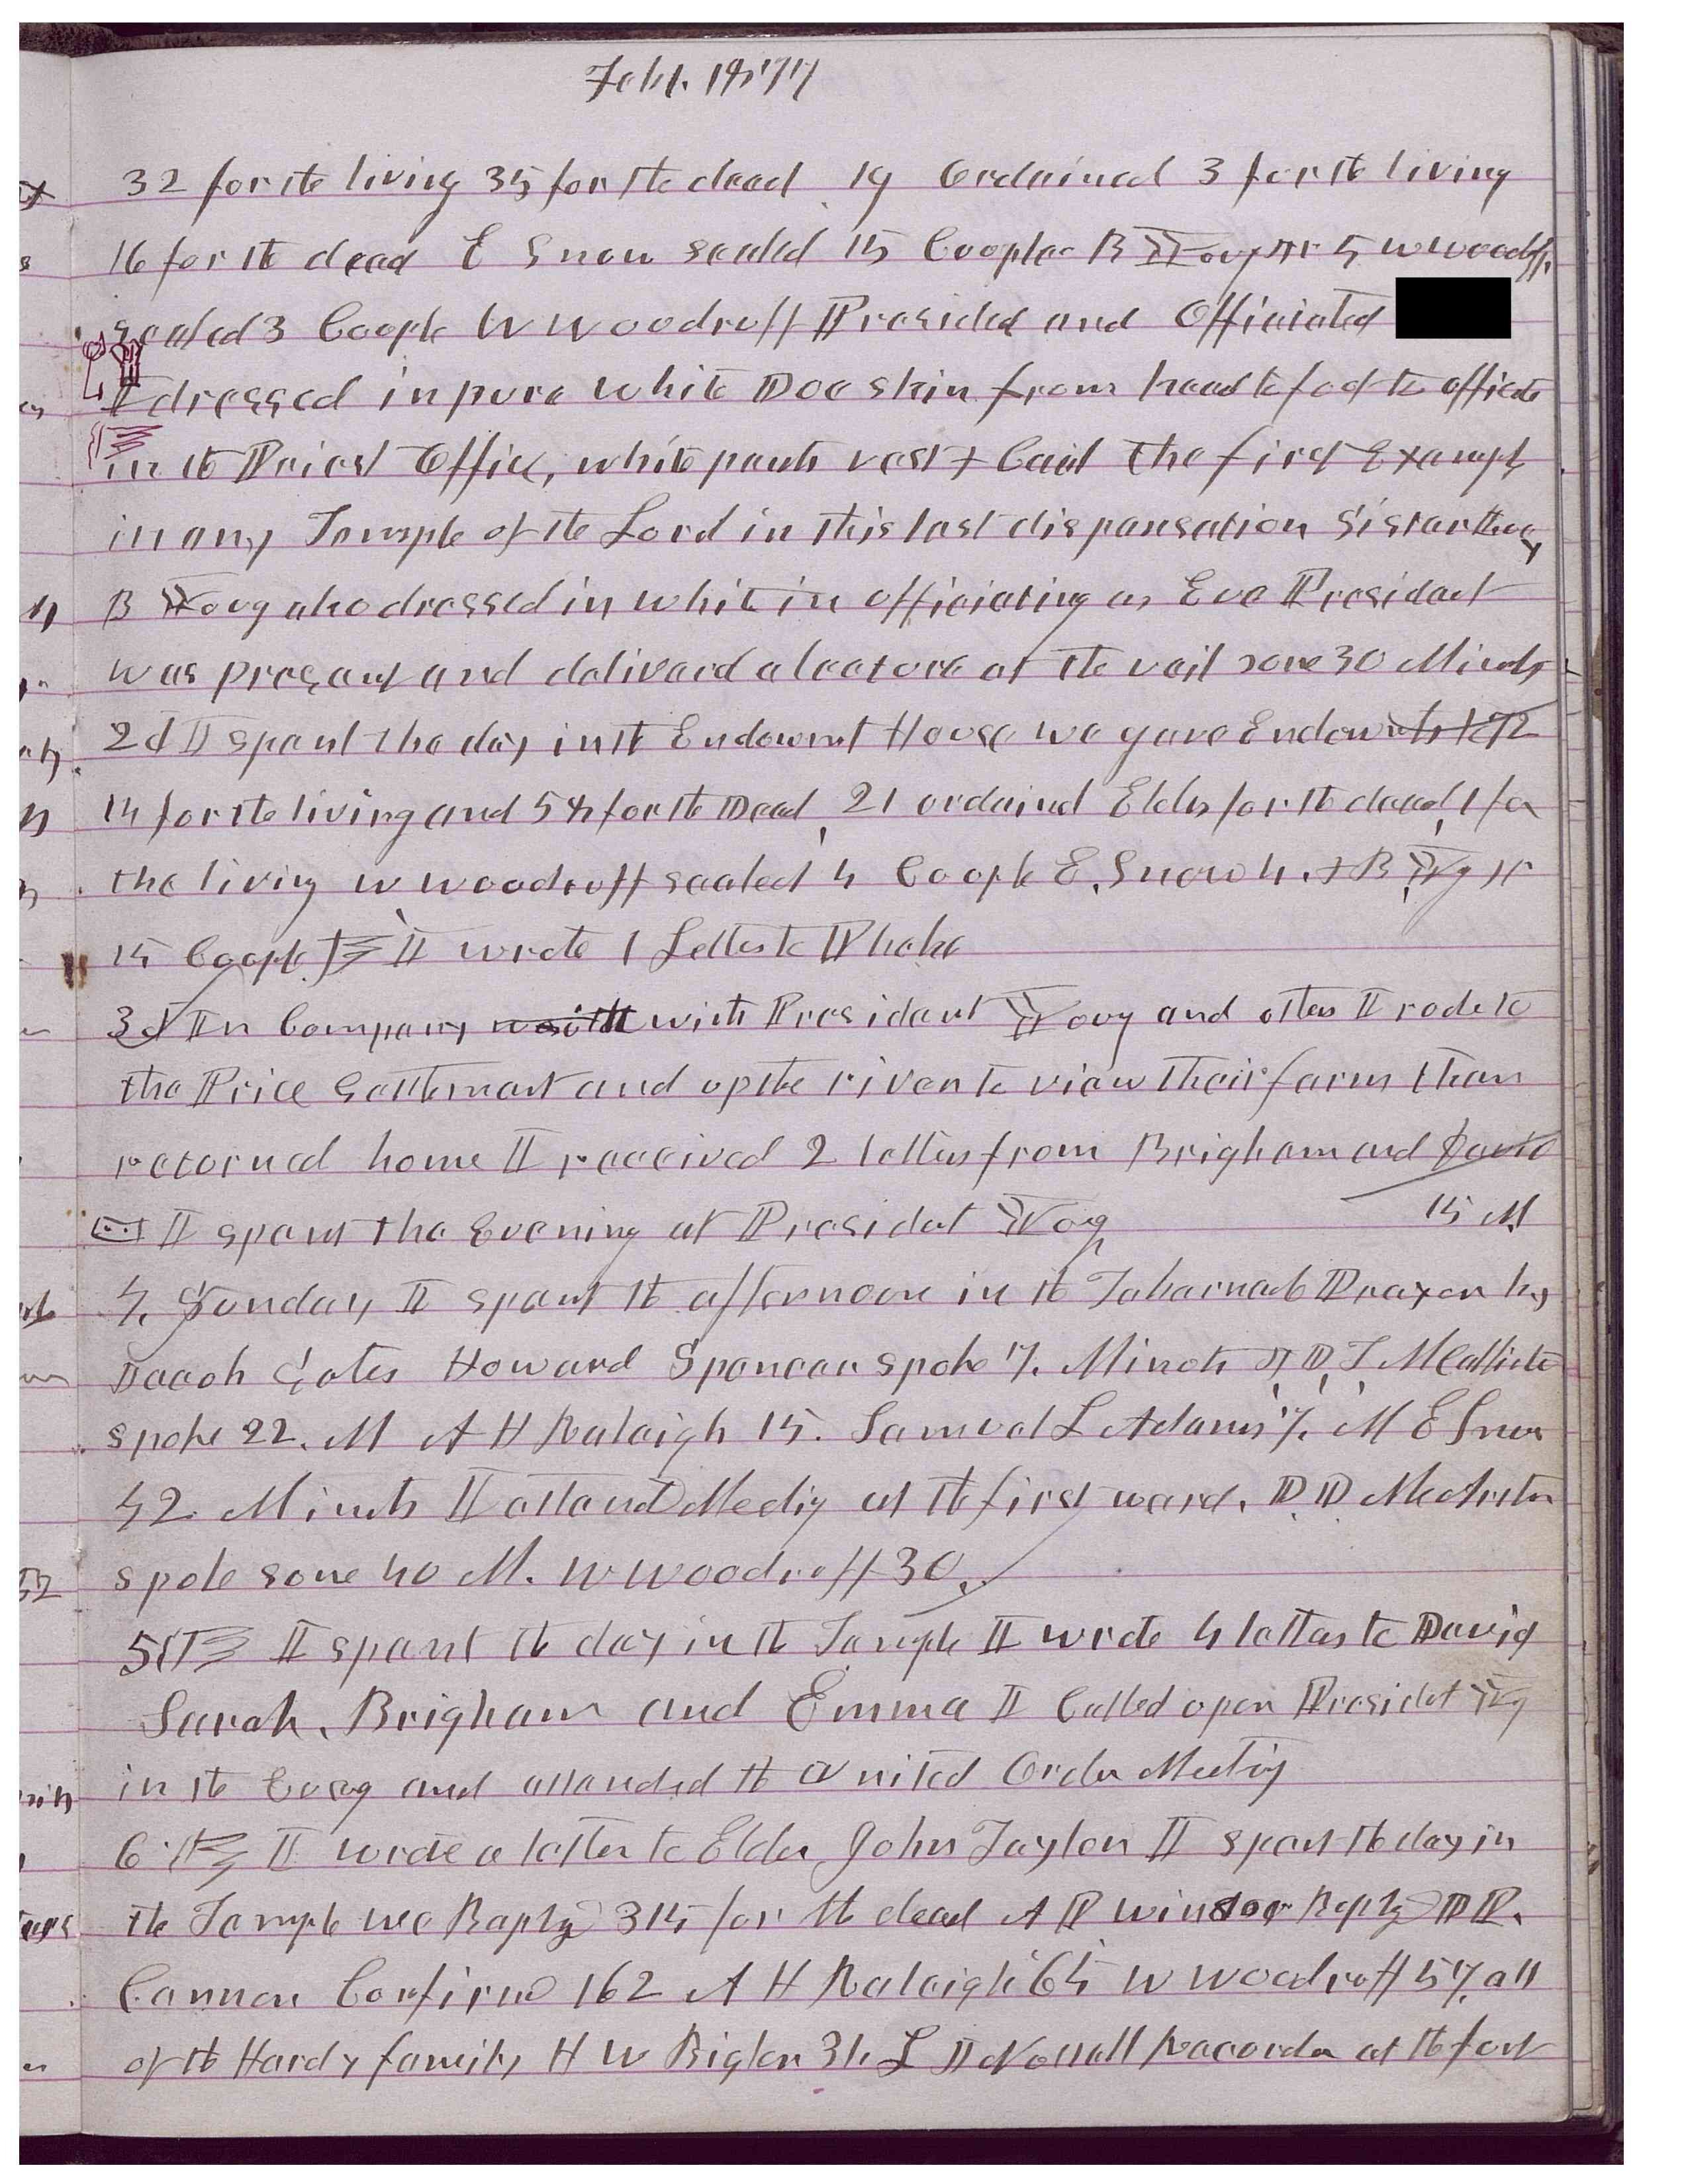 Feb 1. 1877
32 for the living 35 for the dead 19 Ordained 3 for the living
16 for the dead E Snow sealed 15 Coople B Young Jr 5 W Woodruff
sealed 3 Coople W Woodruff Presided and Officiated
I dressed in pure white Doe skin from head to foot to officiate
in the Priest Office, white pants vest & Coat the first Exampl
in any Temple of the Lord in this last dispensation Sister Lucy
B Young also dressed in white in officiating as Eve President
was present and deliverd a lecture at the veil some 30 Minuts
2d I spent the day in the Endowmt House we gave Endowmts to 72
14 for the living and 58 for the Dead, 21 ordaind Elders for the dead, 1 for
the living W Woodruff sealed 4 Coople E. Snow 4. & B Yg Jr
15 Coople I wrote 1 Letter to Phebe
3d In Company with with President Young and others I rode to
the Price Settlement and up the river to view their farm then
returned home I received 2 letters from Brigham and David
I spent the Evening at President Young 15 M
4. Sunday I spent the afternoon in the Tabernacle Prayer by
Jacob Gates Howard Spencer spoke 7. Minuts J, D, T, McAllister
spoke 22. M A H Raleigh 15. Samuel L Adams 7. M E Snow
42 Minuts I attend Meetig at the first ward. D. D. McArthur
spoke some 40 M. W Woodruff 30.
5th I spent the day in the Temple I wrote 4 letters to David
Sarah, Brigham and Emma I Called upon President Yg
in the Eveng and attended the United Order Meeting
6th I wrote a letter to Elder John Taylor I spent the day in
the Temple we Baptzd 314 for the dead A P Winsor Baptzd D. P.
Cannon Confirmd 162 A H Raleigh 64 W Woodruff 57. all
of the Hardy family H W Bigler 31. L J Nuttall Recorder at the font